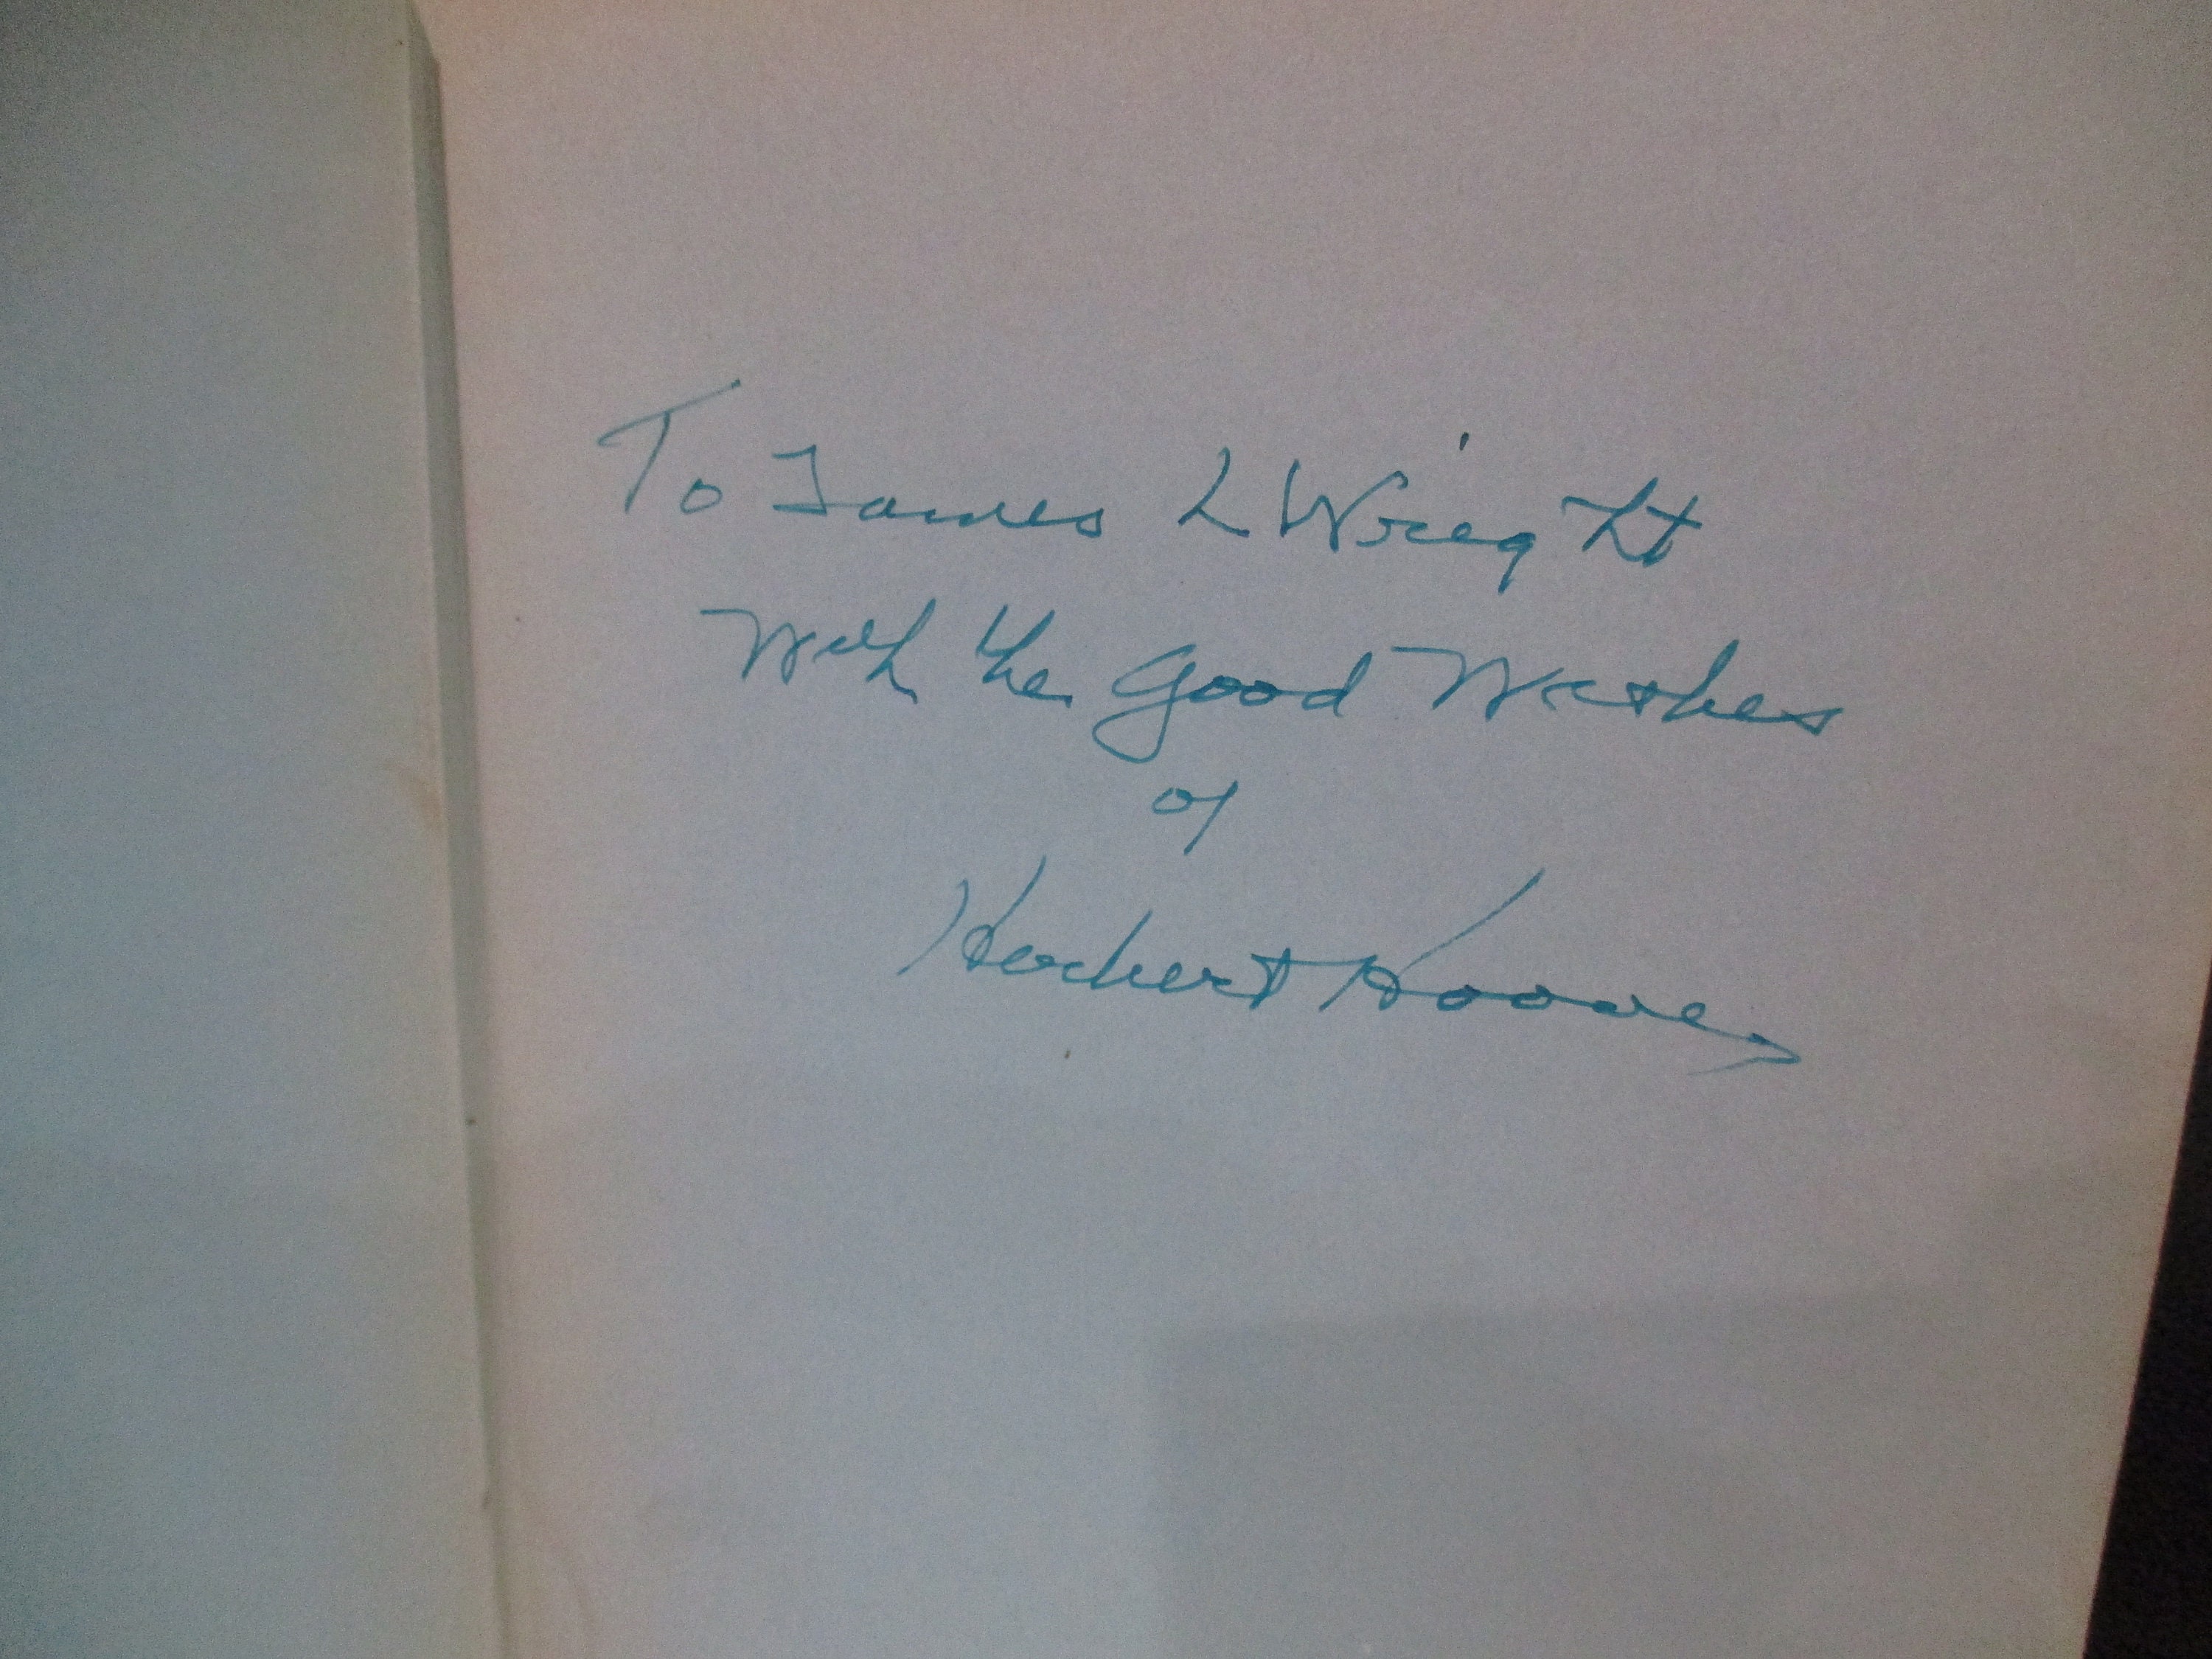 To James L Wright
With the Good Wishes
of
Herbert Hoover